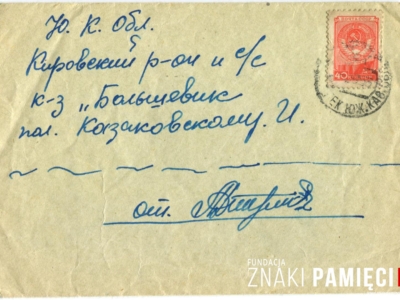 Ю. К. Обл.
Кировский р-он и с/с
к-з „Большевик
пол. Казаковскому. И.
от.
40
ЕК ЮЖ.КАЗ.
FUNDACJA
ZNAKI PAMIĘCI